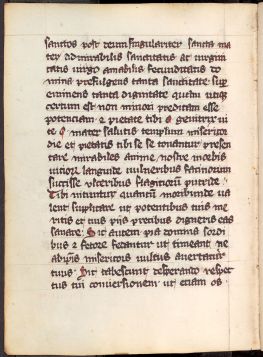 sanctos post deum singulariter sancta ma
ter admirabilis sanctitatis et virgini
tatis virgo amabilis fecunditatis do
mina prefulgens tanta sanctitate sup
eminens tanta dignitate quam utiqz
certum est non minori preditam esse
potencia et pietate tibi o genitrix vi
te o mater salutis templum misericor
die et pietatis tibi se se conantur presen
tare mirabiles anime nostre morbis
viciorum languide vulneribus facinorum
scisse ulceribus flagitiorum putride
Tibi nituntur quantum moribunde va
lent suplicare ut potentibus tuis me
ritis et tuis piis precibus digneris eas
sanare Sic autem pia domina sordi
bus et fetore fedantur ut timeant ne
ab ipsis misericors vultus avertatur
tuus Sic tabescunt desperando respec
tus tui conversionem ut etiam os